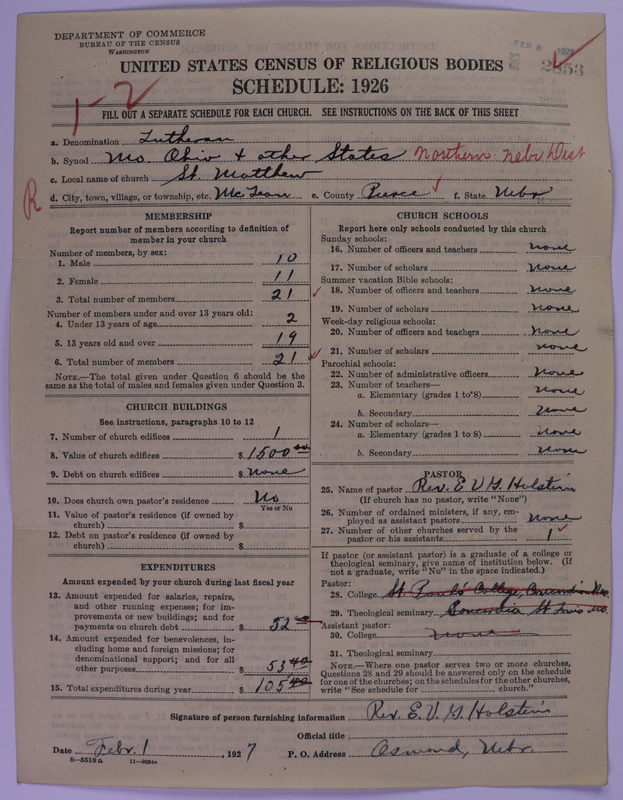 DEPARTMENT OF COMMERCE
BUREAU OF THE CENSUS
WASHINGTON
FEB 8 1927
2853
UNITED STATES CENSUS OF RELIGIOUS BODIES
SCHEDULE: 1926
1-2
FILL OUT A SEPARATE SCHEDULE FOR EACH CHURCH. SEE INSTRUCTIONS ON THE BACK OF THIS SHEET
a. Denomination Lutheran
b. Synod Mo. Ohio & other States Northern Nebr Dist
c. Local name of church St. Matthew
R
d. City, town, village, or township, etc. McLean e. County Pierce f. State Nebr.
MEMBERSHIP
Report number of members according to definition of member in your church
Number of members, by sex:
1. Male 10
2. Female 11
3. Total number of members 21
Number of members under and over 13 years old:
4. Under 13 years of age 2
5. 13 years old and over 19
6. Total number of members 21
NOTE.—The total given under Question 6 should be
same as the total of males and females given under Question 3.
CHURCH BUILDINGS
See instructions, paragraphs 10 to 12
7. Number of church edifices 1
8. Value of church edifices $ 1500.00
9. Debt on church edifices $ None
10. Does church own pastor's residence No
Yes or No
11. Value of pastor's residence (if owned by
church) $
12. Debt on pastor's residence (if owned by
church) $
EXPENDITURES
Amount expended by your church during last fiscal year
13. Amount expended for salaries, repairs,
and other running expenses; for im-
provements or new buildings; and for
payments on church debt $ 52.00
14. Amount expended for benevolences, in-
cluding home and foreign missions; for
denominational support; and for all
other purposes $ 53.40
15. Total expenditures during year $ 105.40
CHURCH SCHOOLS
Report here only schools conducted by this church
Sunday schools:
16. Number of officers and teachers none
17. Number of scholars none
Summer vacation Bible schools:
18. Number of officers and teachers none
19. Number of scholars none
Week-day religious schools:
20. Number of officers and teachers none
21. Number of scholars none
Parochial schools:
22. Number of administrative officers None
23. Number of teachers—
a. Elementary (grades 1 to 8) none
b. Secondary none
24. Number of scholars—
a. Elementary (grades 1 to 8) none
b. Secondary none
PASTOR
25. Name of pastor Rev. E. V. G. Holstein
(If church has no pastor, write "None")
26. Number of ordained ministers, if any, em-
ployed as assistant pastors none
27. Number of other churches served by the
pastor or his assistants 1
If pastor (or assistant pastor) is a graduate of a college or
theological seminary, give name of institution below. (If
not a graduate, write "No" in the space indicated.)
Pastor:
28. College St. Paul's College, Concordia Mo.
29. Theological seminary Concordia St. Louis Mo.
Assistant pastor:
30. College none
31. Theological seminary
NOTE.—Where one pastor serves two or more churches,
Questions 28 and 29 should be answered only on the schedule
for one of the churches; on the schedules for the other churches,
write "See schedule for church."
Signature of person furnishing information Rev. E. V. G. Holstein
Official title
Date Febr. 1, 1927 P. O. Address Osmond, Nebr.
8-5518 a 11-9054a